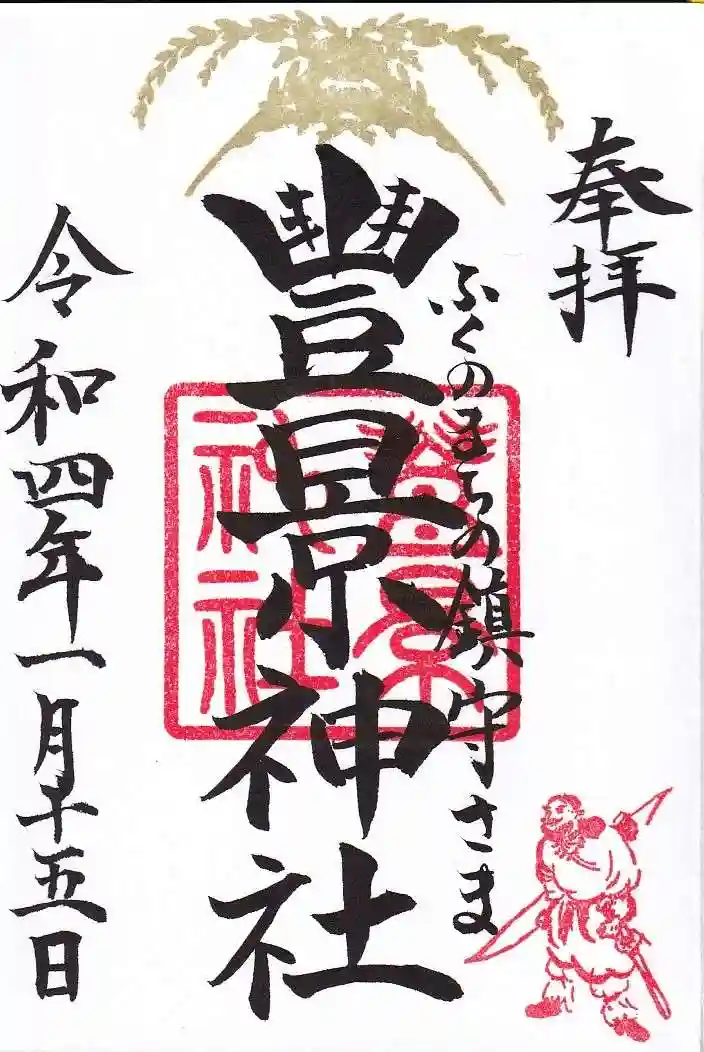 奉拝
ふくのまちの鎮守さま
豐景神社
豐景
神社
令和四年一月十五日